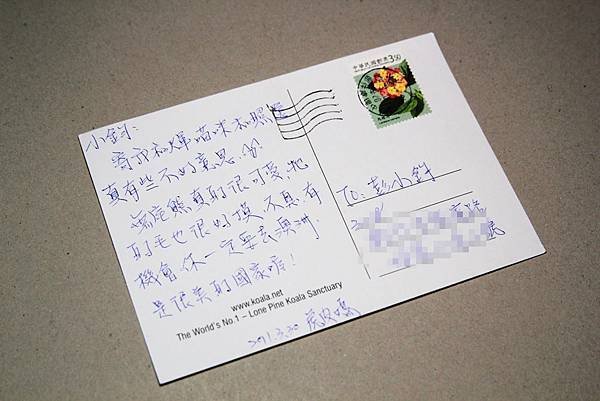 小鈄:
寄我和輝喵咪和照片
真有些不好意思.
無尾熊真的很可愛,牠
的毛也很好摸,不臭,有
機會你一定要去澳洲.
是很美的國家喔!
www.koala.net
The World's No.1 – Lone Pine Koala Sanctuary
2011.3.30
中華民國郵票
350
To: 彭小鈄